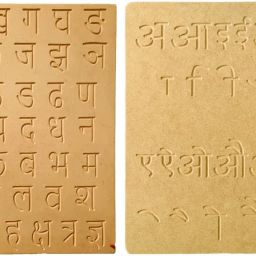 ख ग घ ङ
ज झ ञ
ड ढ ण
द ध न
ब भ म
ल व श
ह क्ष त्र ज्ञ
अ आ इ ई
ए ऐ ओ औ